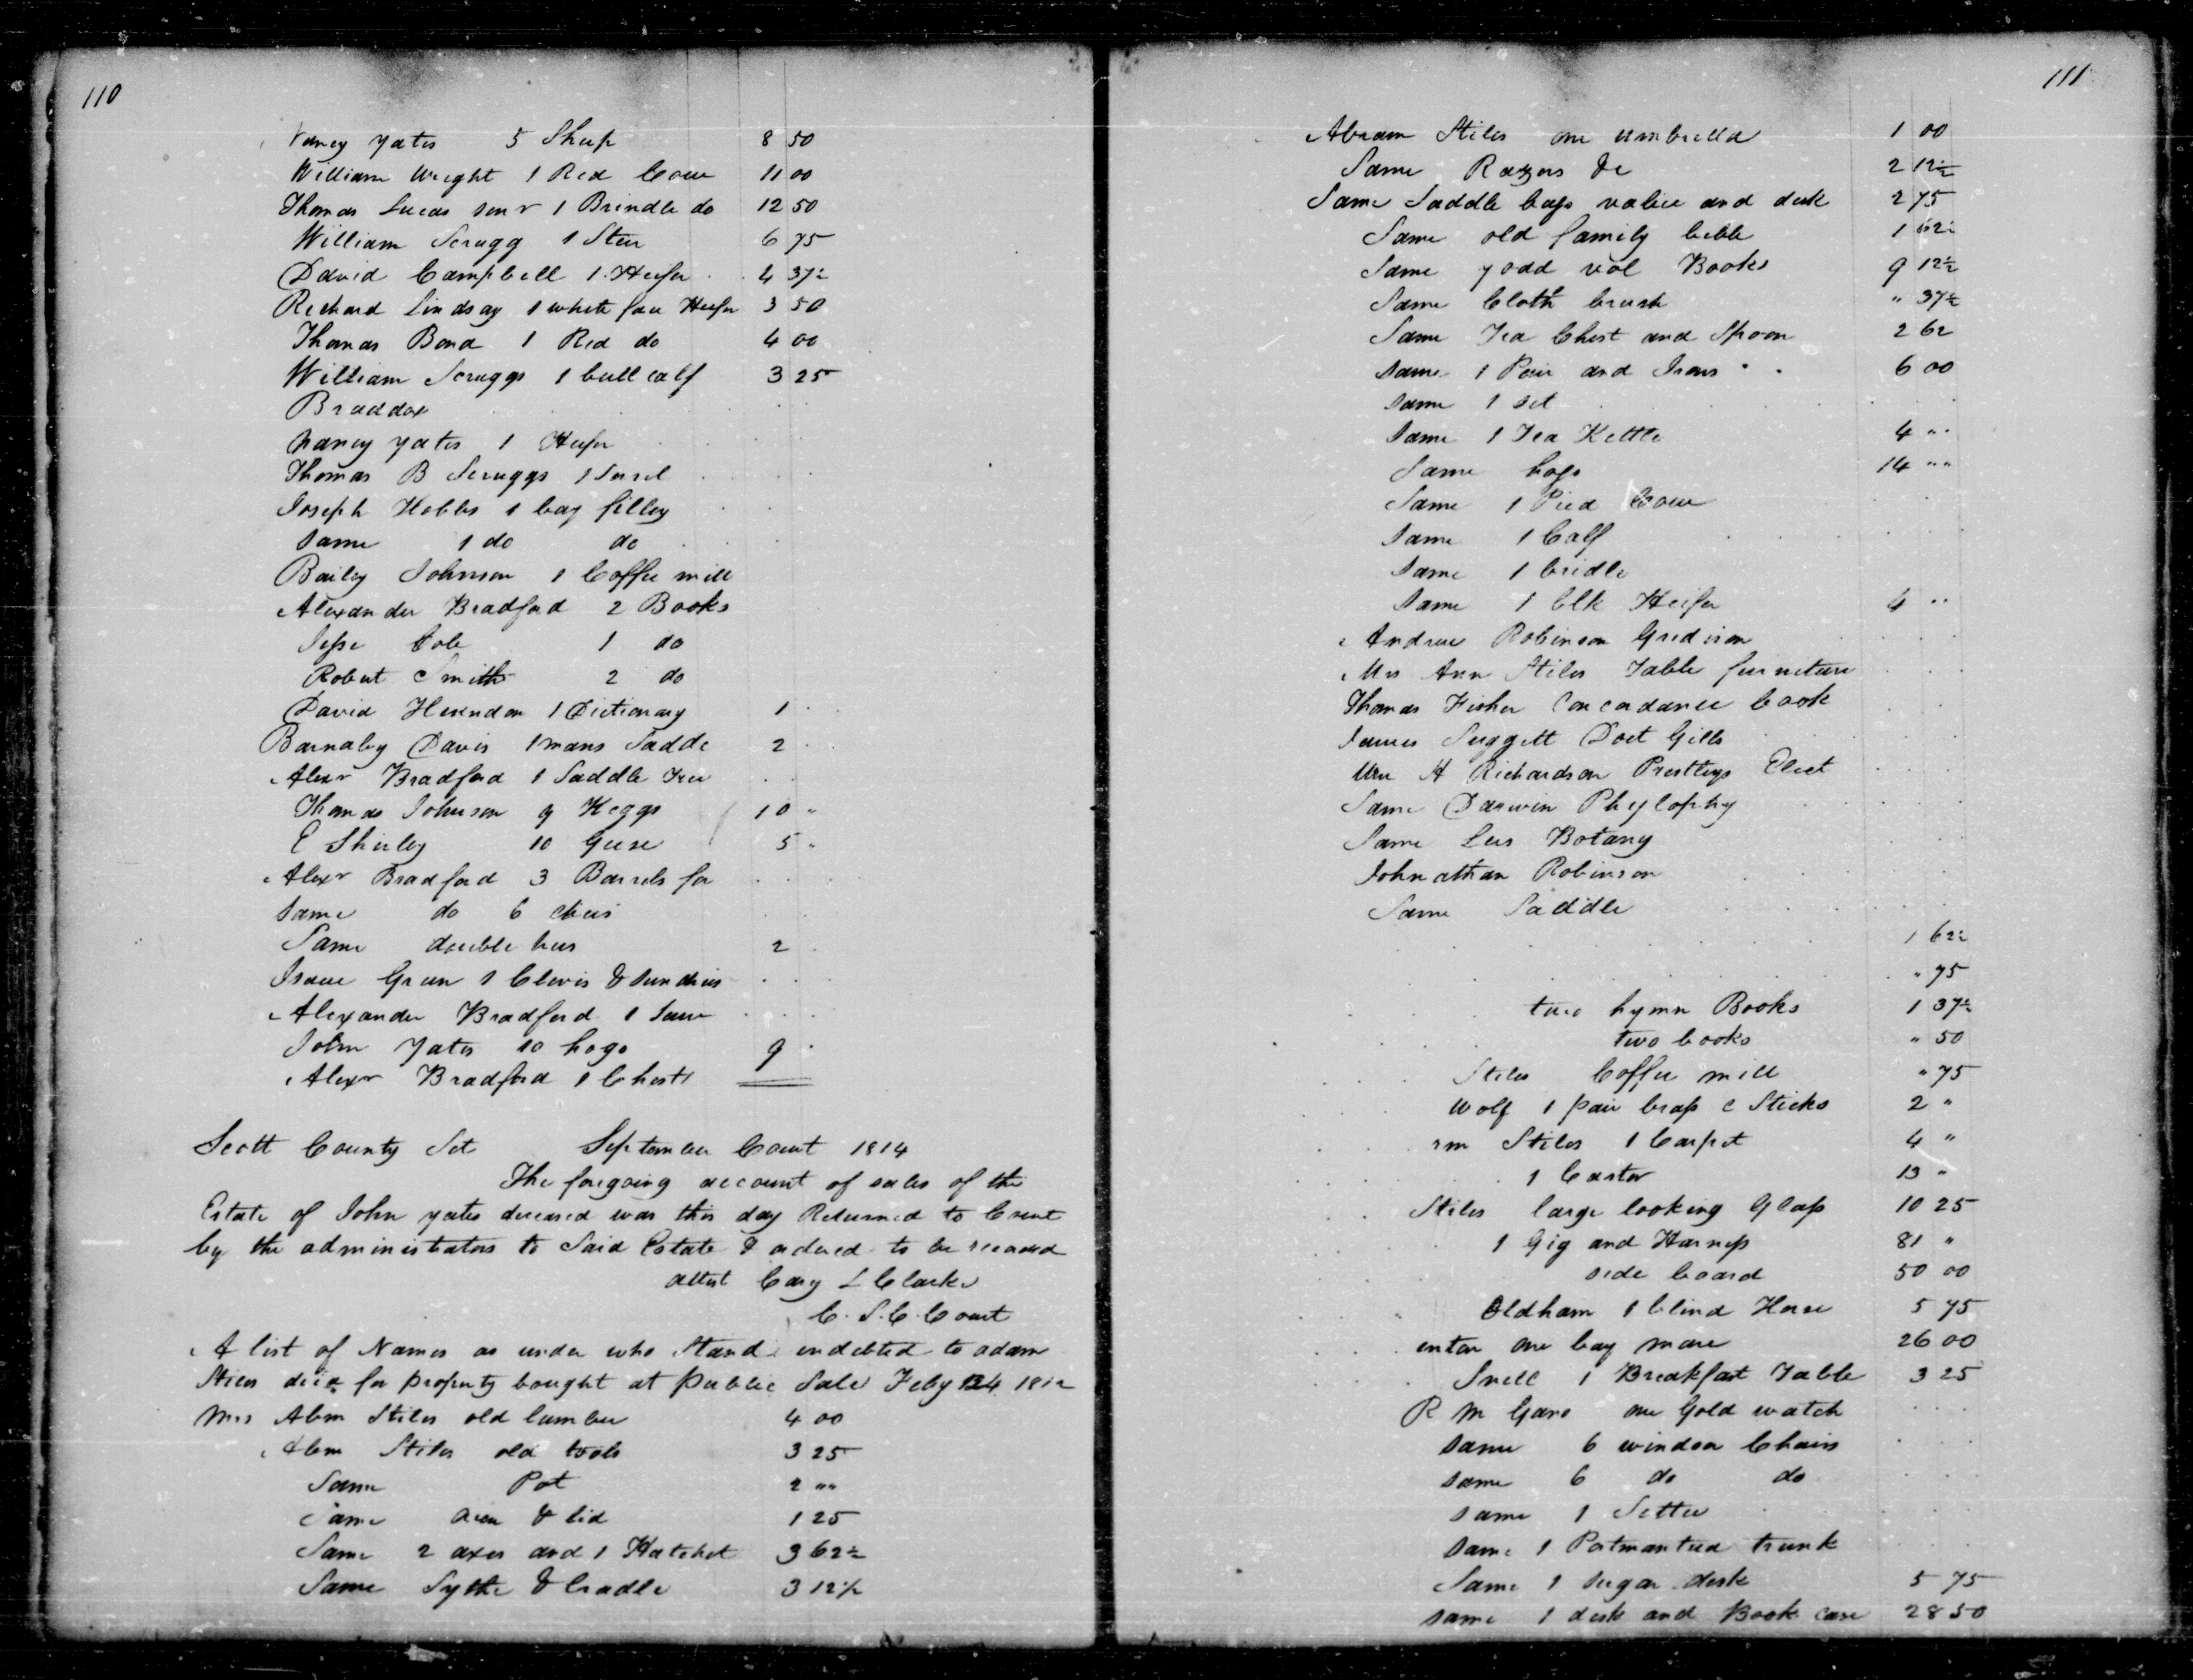 110
Nancy Yates 5 Sheep 8 50
William Wright 1 Red Cow 11 00
Thomas Lucas senr 1 Brindle do 12 50
William Scrugg 1 Steer 6 75
David Campbell 1 Heifer 4 37½
Richard Lindsay 1 white face Heifer 3 50
Thomas Bond 1 Red do 4 00
William Scruggs 1 bull calf 3 25
Braddox
Nancy Yates 1 Heifer
Thomas B Scruggs 1 Sorrel
Joseph Hobbs 1 bay filley
Same 1 do do
Bailey Johnson 1 Coffee mill
Alexander Bradford 2 Books
Jesse Cole 1 do
Robert Smith 2 do
David Herndon 1 Dictionary 1
Barnabey Davis 1 mans Sadde 2
Alexr Bradford 1 Saddle Tree
Thomas Johnson 9 Keggs 10 "
E Shirley 10 Geese 5 "
Alexr Bradford 3 Barrels for
Same do 6
Same double 2
Isaac Green 1 Clevis & Sundries
Alexander Bradford 1 Saw
John Yates 10 hogs 9
Alexr Bradford 1 Chest
Scott County Sct September Court 1814
The forgoing account of sales of the
Estate of John Yates deceased was this day Returned to Court
by the administrators to Said Estate & ordered to be recorded
attest Cary L Clarke
C. S. C. Court
A list of Names as under who Stand indebted to adam
Stiles decd for property bought at Public Sale Feby 24 1812
Mrs Abm Stiles old lumber 4 00
Abm Stiles old tools 3 25
Same Pot 2 ""
Same oven & lid 1 25
Same 2 axes and 1 Hatchet 3 62½
Same Sythe & Cradle 3 12½
111
Abram Stiles one umbrella 1 00
Same Razors &c 2 12½
Same Saddle bags valice and desk 2 75
Same old family bible 1 62½
Same 7 odd vol Books 9 12½
Same Cloth brush " 37½
Same Tea Chest and Spoon 2 62
Same 1 Pair and Irons 6 00
Same 1 set
Same 1 Tea Kettle 4 ""
Same hogs 14 ""
Same 1 Pied Cow
Same 1 Calf
Same 1 bridle
Same 1 blk Heifer 4 ""
Andrew Robinson Gredison
Mrs Ann Stiles Table furniture
Thomas Fisher Concordance book
James Suggett Doct Gills
Wm H Richardson Prestleys Elect
Same Darwin Phylophy
Same Lees Botany
Johnathan Robinson
Same Saddle
1 62½
" 75
two hymn Books 1 37½
two books " 50
Stiles Coffee mill " 75
Wolf 1 pair brass c Sticks 2 "
rm Stiles 1 Carpet 4 "
1 Castor 13 "
Stiles large looking Glass 10 25
1 Gig and Harness 81 "
side board 50 00
Oldham 1 blind Horse 5 75
enton one bay mare 26 00
Snell 1 Breakfast Table 3 25
R M Gano one Gold watch
Same 6 windsor Chairs
Same 6 do do
Same 1 Settee
Same 1 Portmanteau trunk
Same 1 sugar desk 5 75
Same 1 desk and Book case 28 50